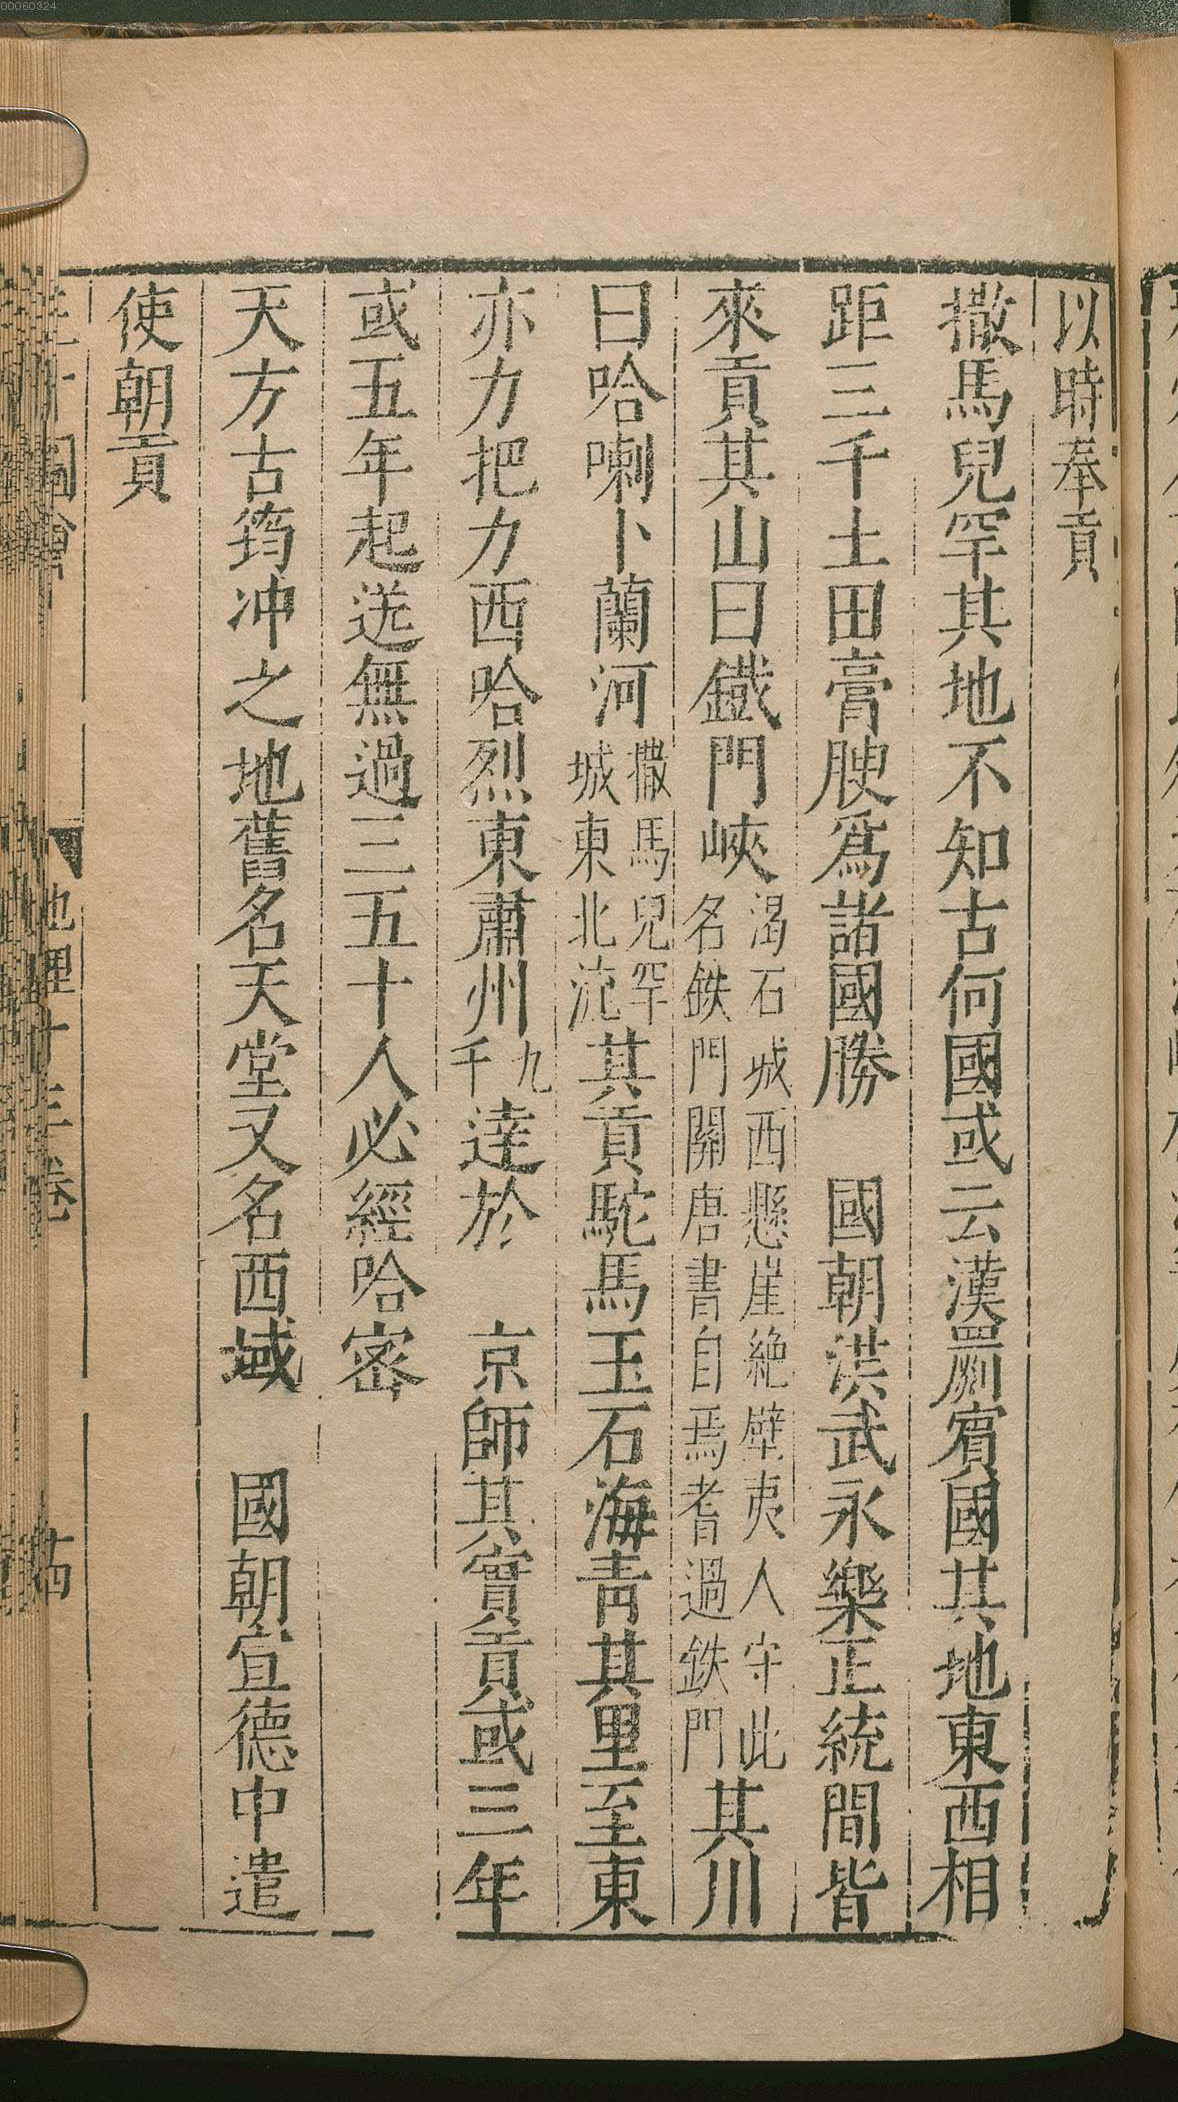 以時奉貢
撒馬兒罕其地不知古何國或云漢罽賓國其地東西相
距三千土田膏腴爲諸國勝　國朝洪武永樂正統間皆
來貢其山曰鐵門峽渴石城西懸崖絶壁夷人守此名鉄門關唐書自焉耆過鉄門其川
曰哈喇卜蘭河撒馬兒罕城東北流其貢駝馬玉石海青其里至東
亦力把力西哈烈東肅州九千逹於　京師其實貢或三年
或五年起送無過三五十人必經哈密
天方古筠冲之地舊名天堂又名西域　國朝宣德中遣
使朝貢
地理十三卷
00060324